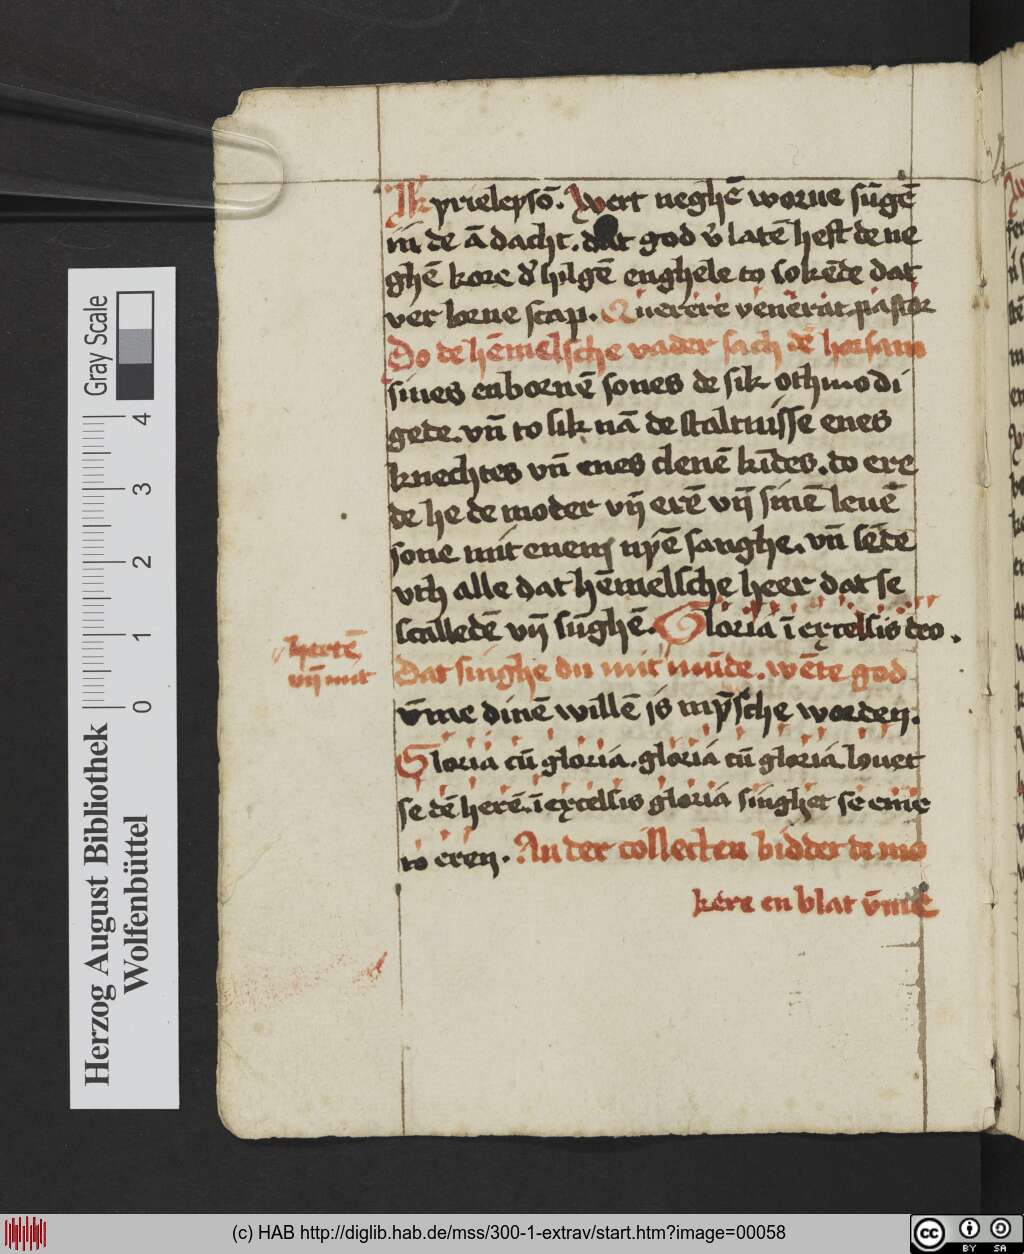 Ik yrieleyso͞. Wert neghe͞ worue su͞ge͞
in de a͞ dacht. dat god v͛ late͞ heft de ne
ghe͞ kore d͛ hilge͞ enghele to soke͞de dat
ver lorne scap. Querere venerat pastor
Do de he͞melsche vader sach de͞ horsam
sines enborne͞ sones de sik othmodi
gede. vn͞ to sik na͞ de staltnisse enes
knechtes vn͞ enes clene͞ ki͞des. do ere
de he de moder vn͞ ere͞ vn͞ sine͞ leue͞
sone mit enem nye͞ sanghe. vn͞ se͞de
vth alle dat he͞melsche heer dat se
scallede͞ vn͞ su͞ghe͞. Gloria i͞ excelsis deo.
herte͞
vn͞ mit
Dat singhe du mit mu͞de. we͞te god
v͞me dine͞ wille͞ is my͞sche worden.
Gloria cu͞ gloria. gloria cu͞ gloria. louet
se de͞ here͞. i͞ excelsis gloria singhet se eme
to eren. An der collecten bidder de mo
kere en blat v͞me
Herzog August Bibliothek
Wolfenbüttel
Gray Scale
0 1 2 3 4
(c) HAB http://diglib.hab.de/mss/300-1-extrav/start.htm?image=00058
cc BY SA